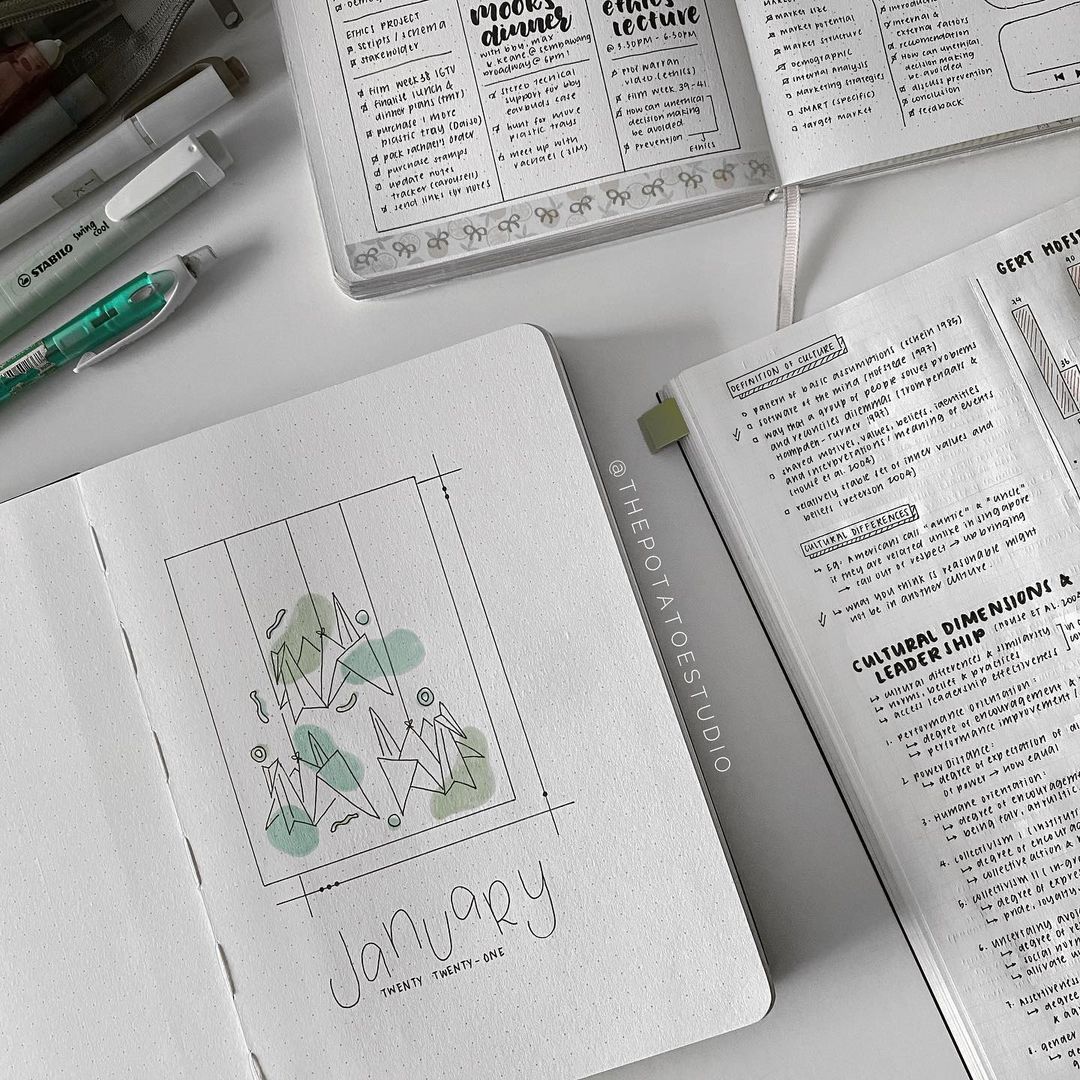 ETHICS PROJECT
scripts / schema
stakeholder
film week 38 IGTV
finalise lunch &
dinner plans (tmr)
purchase 1 more
plastic tray (Daiso)
pack rachael's order
purchase stamps
update notes
tracker (carousell)
send links for notes
mook's
dinner
with bby, max
& keane @ sembawang
broadway @ 6pm!
stereo technical
support for bby
earbuds case
hunt for more
plastic trays
meet up with
rachael (SIM)
ethics
lecture
@ 3.30PM - 6.30PM
prof warran
video (ethics)
film week 39-41
how can unethical
decision making
be avoided
prevention
ETHICS
market size
market potential
market structure
demographic
internal analysis
marketing strategies
SMART (specific)
target market
introduction
internal &
external factors
reccomendation
how can unethical
decision making
be avoided
discuss prevention
conclusion
feedback
STABILO swing
cool
GERT HOFST
40
24
36
DEFINITION OF CULTURE
pattern of basic assumptions (schein 1985)
software of the mind (Hofstede 1997)
way that a group of people solves problems
and reconciles dilemmas (Trompenaars &
Hampden-Turner 1997)
shared motives, values, beliefs, identities
and interpretations / meaning of events
(House et al. 2004)
relatively stable set of inner values and
beliefs (Peterson 2004)
CULTURAL DIFFERENCES
↳ Eg. Americans call "auntie" & "uncle"
if they are related unlike in singapore
→ call out of respect → upbringing
↳ what you think is reasonable might
not be in another culture.
CULTURAL DIMENSIONS &
LEADERSHIP (HOUSE ET AL. 2004
↳ cultural differences & similarity
↳ norms, belief & practices
↳ access leadership effectiveness
1. performance orientation:
↳ degree of encouragement &
↳ performance improvement /
2. Power Distance:
↳ degree of expectation of
or power → how equal
3. Humane orientation:
↳ degree of encouragem
↳ being fair, altruistic
4. collectivism I (institut
↳ degree of encour
↳ collective action &
5. collectivism II (in-gr
↳ degree of expre
↳ pride, loyalty
6. uncertainty avoi
↳ degree of re
↳ social nor
↳ alliviate u
7. Assertiveness
↳ degree
8. gender
@THEPOTATOESTUDIO
January
TWENTY TWENTY-ONE